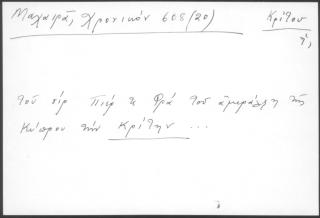 Μαχαιρᾶ, Χρονικόν 608 (20) Κρίτου
ἡ,
τοῦ σὶρ Πιὲρ τε Φρὰ τοῦ ἀμεράλλη τῆς
Κύπρου τὴν Κρίτην ...